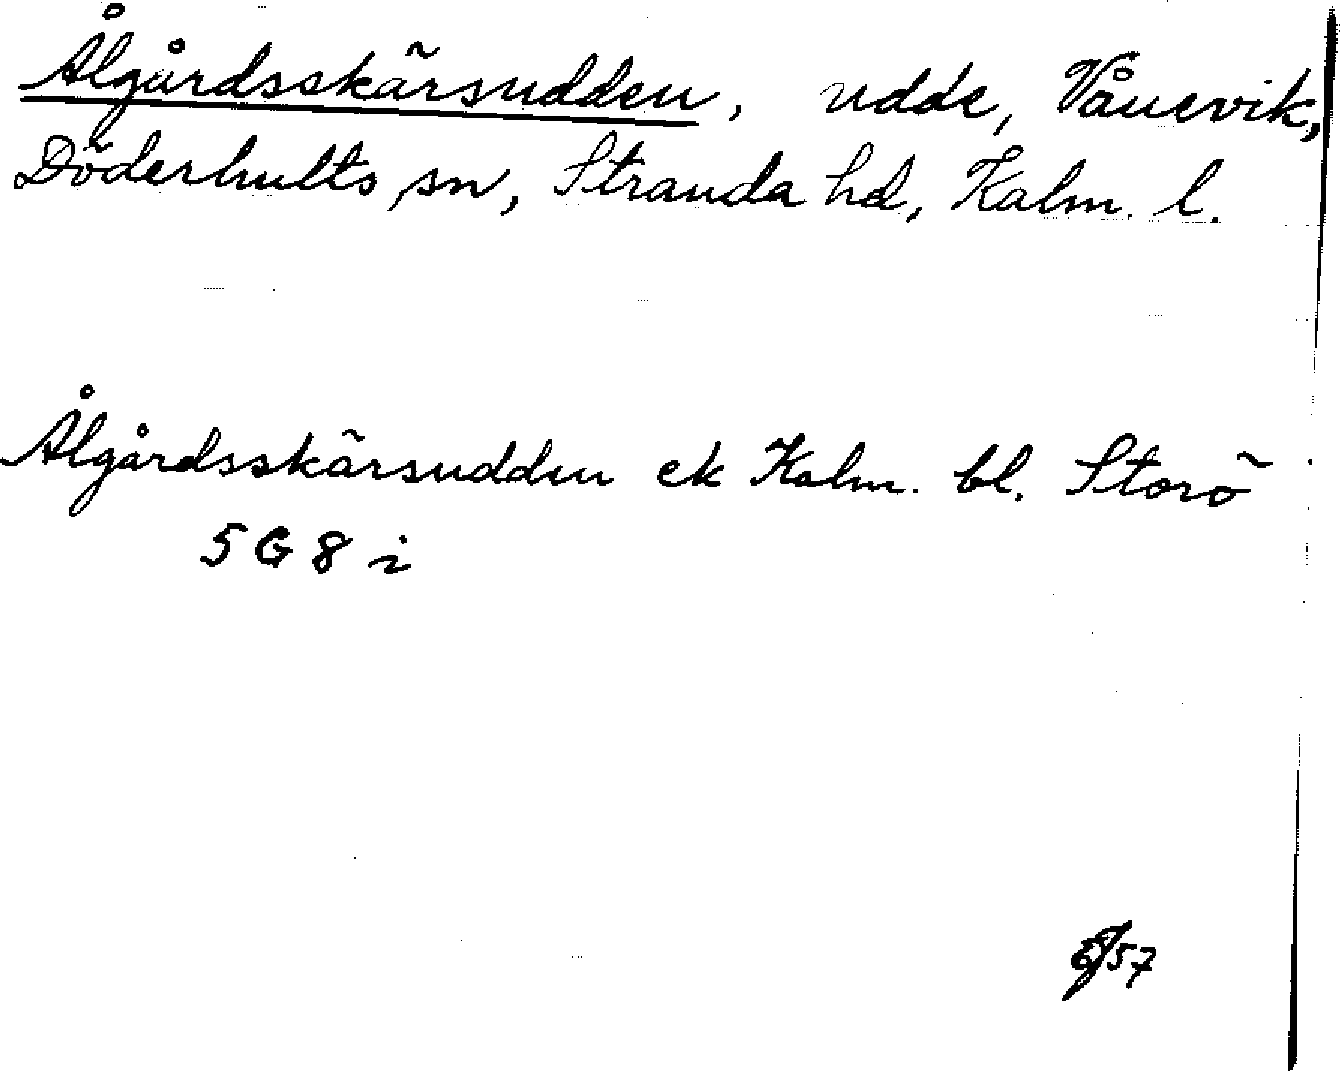 Ålgårdsskärsudden, udde, Vånevik,
Döderhults sn, Stranda hd, Kalm. l.
Ålgårdsskärsudden ek Kalm. bl. Storö
5 G 8 i
57